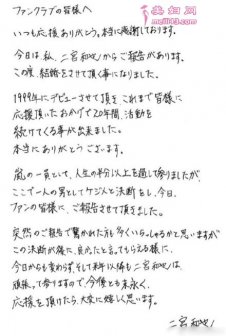 美妇网
meifu13.com
ファンクラブの皆様へ
いつも応援ありがとう。本当に感謝しております。
今日は私、二宮和也からご報告があります。
この度、結婚をさせて頂く事になりました。
1999年にデビューさせて頂き、これまで皆様に
応援頂いたおかげで20年間、活動を
続けてくる事が出来ました。
本当にありがとうございます。
嵐の一員として、人生の半分以上を過して参りましたが、
ここで一人の男としてケジメと決断をし、今日、
ファンの皆様に、ご報告させて頂きました。
突然のご報告で驚かれた方も多くいらっしゃるかと思いますが
この決断が後に、良かったと言ってもらえる様に、
今日からも変わらず、そして来年以降も二宮和也は、
頑張って参りますので、今後とも末永く、
応援を頂けたら、大変に嬉しく思います。
二宮和也